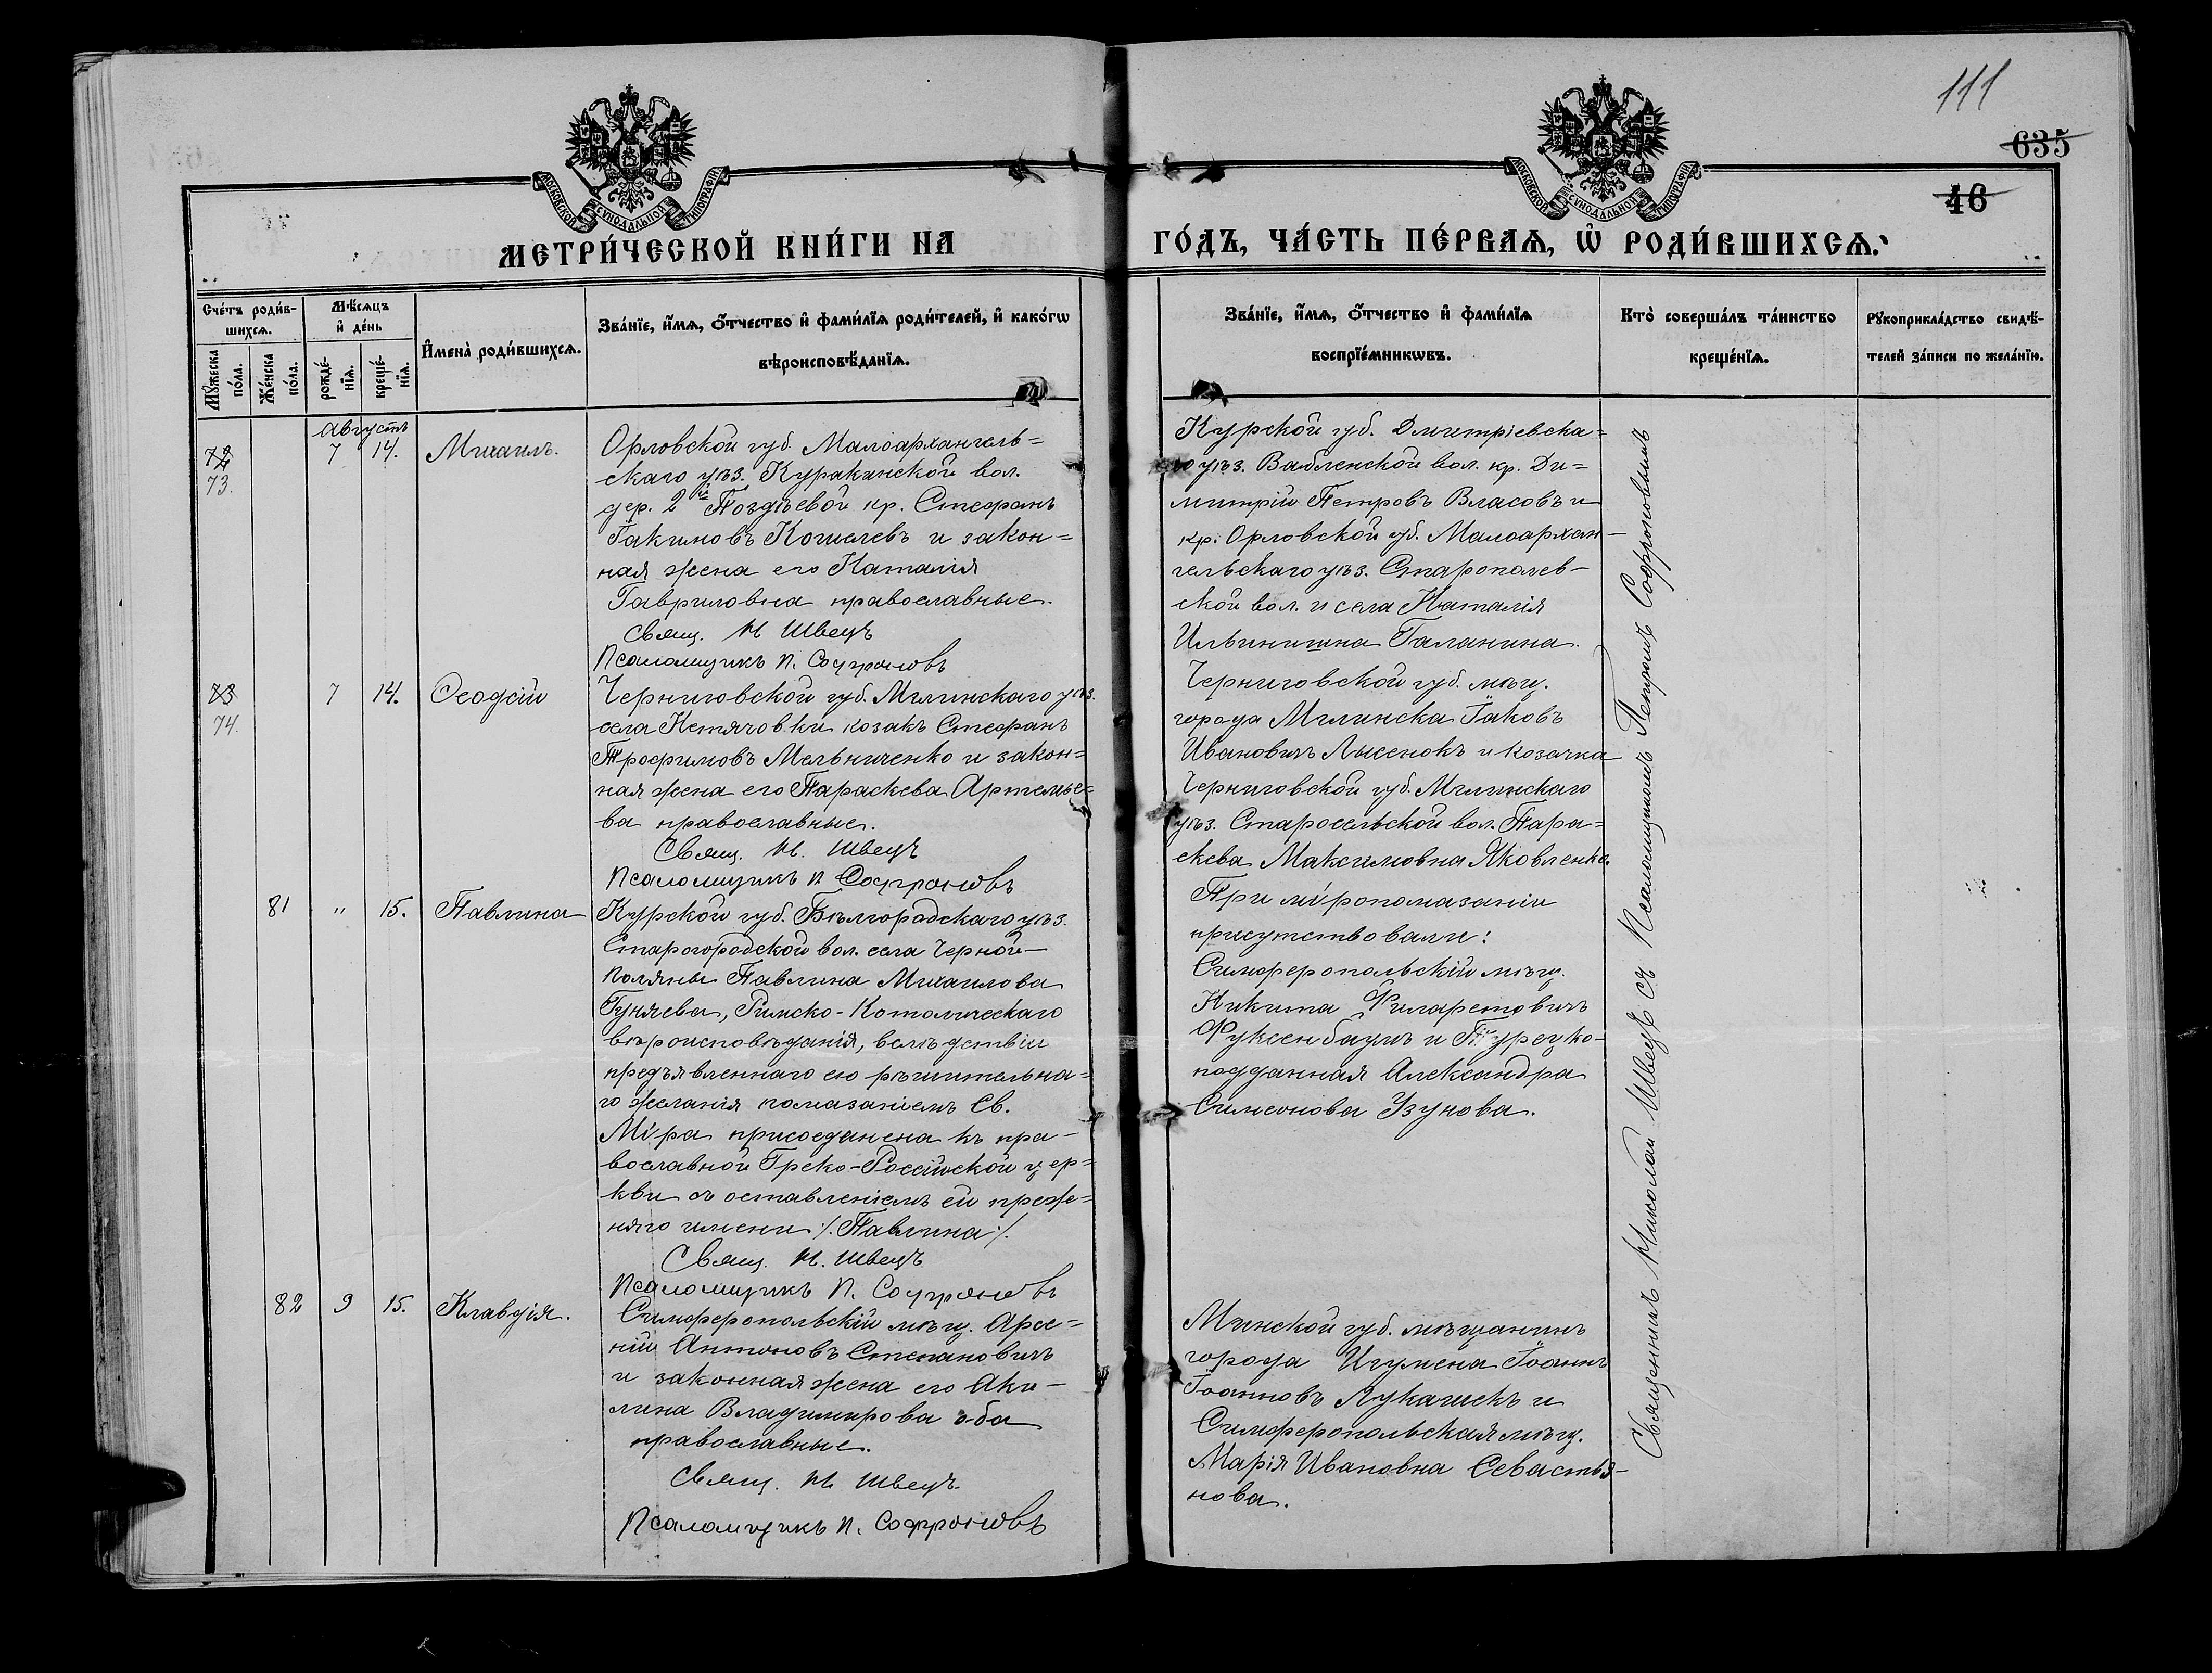 111
635
46
МОСКОВСКОЙ СѴНОДАЛЬНОЙ ТИПОГРАФІИ
МОСКОВСКОЙ СѴНОДАЛЬНОЙ ТИПОГРАФІИ
МЕТРИ́ЧЕСКОЙ КНИ́ГИ НА ГО́ДЪ, ЧА́СТЬ ПЕ́РВАѦ, Ѡ҆ РОДИ́ВШИХСѦ.
Сче́тъ роди́в-
шихсѧ.
Мꙋ́жеска по́ла.
Же́нска по́ла.
Мѣ́сѧцъ и҆ де́нь
рожде́-
нїѧ.
креще́-
нїѧ.
И҆мена̀ роди́вшихсѧ.
Зва́нїе, и҆́мѧ, ѻ҆́тчество и҆ фами́лїѧ роди́телей, и҆ како́гѡ
вѣроисповѣ́данїѧ.
Зва́нїе, и҆́мѧ, ѻ҆́тчество и҆ фами́лїѧ
воспрїе́мникѡвъ.
Кто̀ соверша́лъ та́инство
креще́нїѧ.
Рꙋкоприкла́дство свидѣ́-
телей за́писи по жела́нїю.
Августъ
72
73.
7 14. Михаилъ.
Орловской губ. Малоархангель=
скаго уѣз. Куракинской вол.
дер. 2й Поздѣевой кр. Стефанъ
Іакимовъ Кошелевъ и закон=
ная жена его Наталія
Гавриловна православные.
Свящ. Н Швецъ
Псаломщикъ П. Софроновъ
Курской губ. Дмитріевска=
го уѣз. Вабленской вол. кр. Ди=
митрій Петровъ Власовъ и
кр. Орловской губ. Малоархан-
гельскаго уѣз. Старополев-
ской вол. и села Наталія
Ильинишна Галанина.
73
74.
7 14. Ѳеодосій
Черниговской губ. Мглинскаго уѣз.
села Нетяговки козакъ Стефанъ
Трофимовъ Мельниченко и закон=
ная жена его Параскева Артемье=
ва православные.
Свящ. Н. Швецъ
Псаломщикъ П Софроновъ
Черниговской губ. мѣщ.
города Мглинска Іаковъ
Ивановичъ Лысенокъ и козачка
Черниговской губ. Мглинскаго
уѣз. Старосельской вол. Пара=
скева Максимовна Яковленко
81 " 15. Павлина
Курской губ. Бѣлгородскаго уѣз.
Старогородской вол. села Черной-
Поляны Павлина Михаилова
Гуняева, Римско-Католическаго
вѣроисповѣданія, вслѣдствіи
предъявленнаго ею рѣшительна=
го желанія помазаніемъ Св.
Мѵра присоединена къ пра-
вославной Греко-Россійской цер=
кви съ оставленіемъ ей преж=
няго имени /:Павлина:/.
Свящ. Н. Швецъ
Псаломщикъ П. Софроновъ
При мѵропомазаніи
присутствовали:
Симферопольскій мѣщ.
Никита Филаретовичъ
Фуксенбаумъ и Турецко-
подданная Александра
Симеонова Узунова.
82 9 15. Клавдія.
Симферопольскій мѣщ. Арсе=
ній Антоновъ Степановичъ
и законная жена его Аки-
лина Владимирова оба
православные.
Свящ. Н. Швецъ.
Псаломщикъ П. Софроновъ
Минской губ. мѣщанинъ
города Игумена Іоаннъ
Іоанновъ Лукашекъ и
Симферопольская мѣщ.
Марія Ивановна Севастья-
нова.
Священникъ Николай Швецъ съ Псаломщикомъ Петромъ Софроновымъ